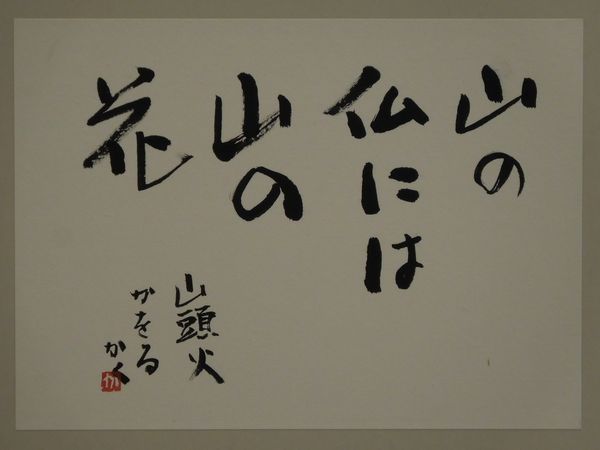 山の
仏には
山の
花
山頭火
かをる
かく